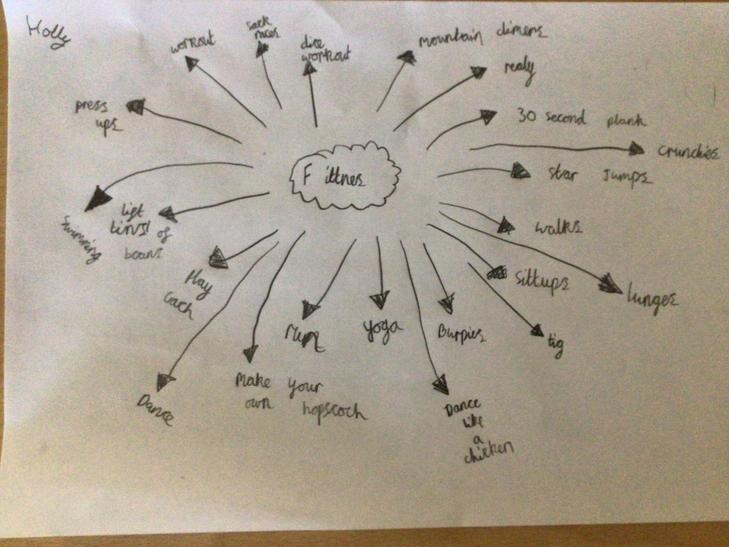 Holly
workout
sack
races
dice
workout
mountain climers
realy
press
ups
30 second plank
crunchies
Fittnes
star Jumps
swimming
lift
tins! of
beans
walks
Play
Cach
sittups
lunges
run
yoga
Burpies
tig
Dance
Make your
own hopscoch
Dance
like
a
chicken